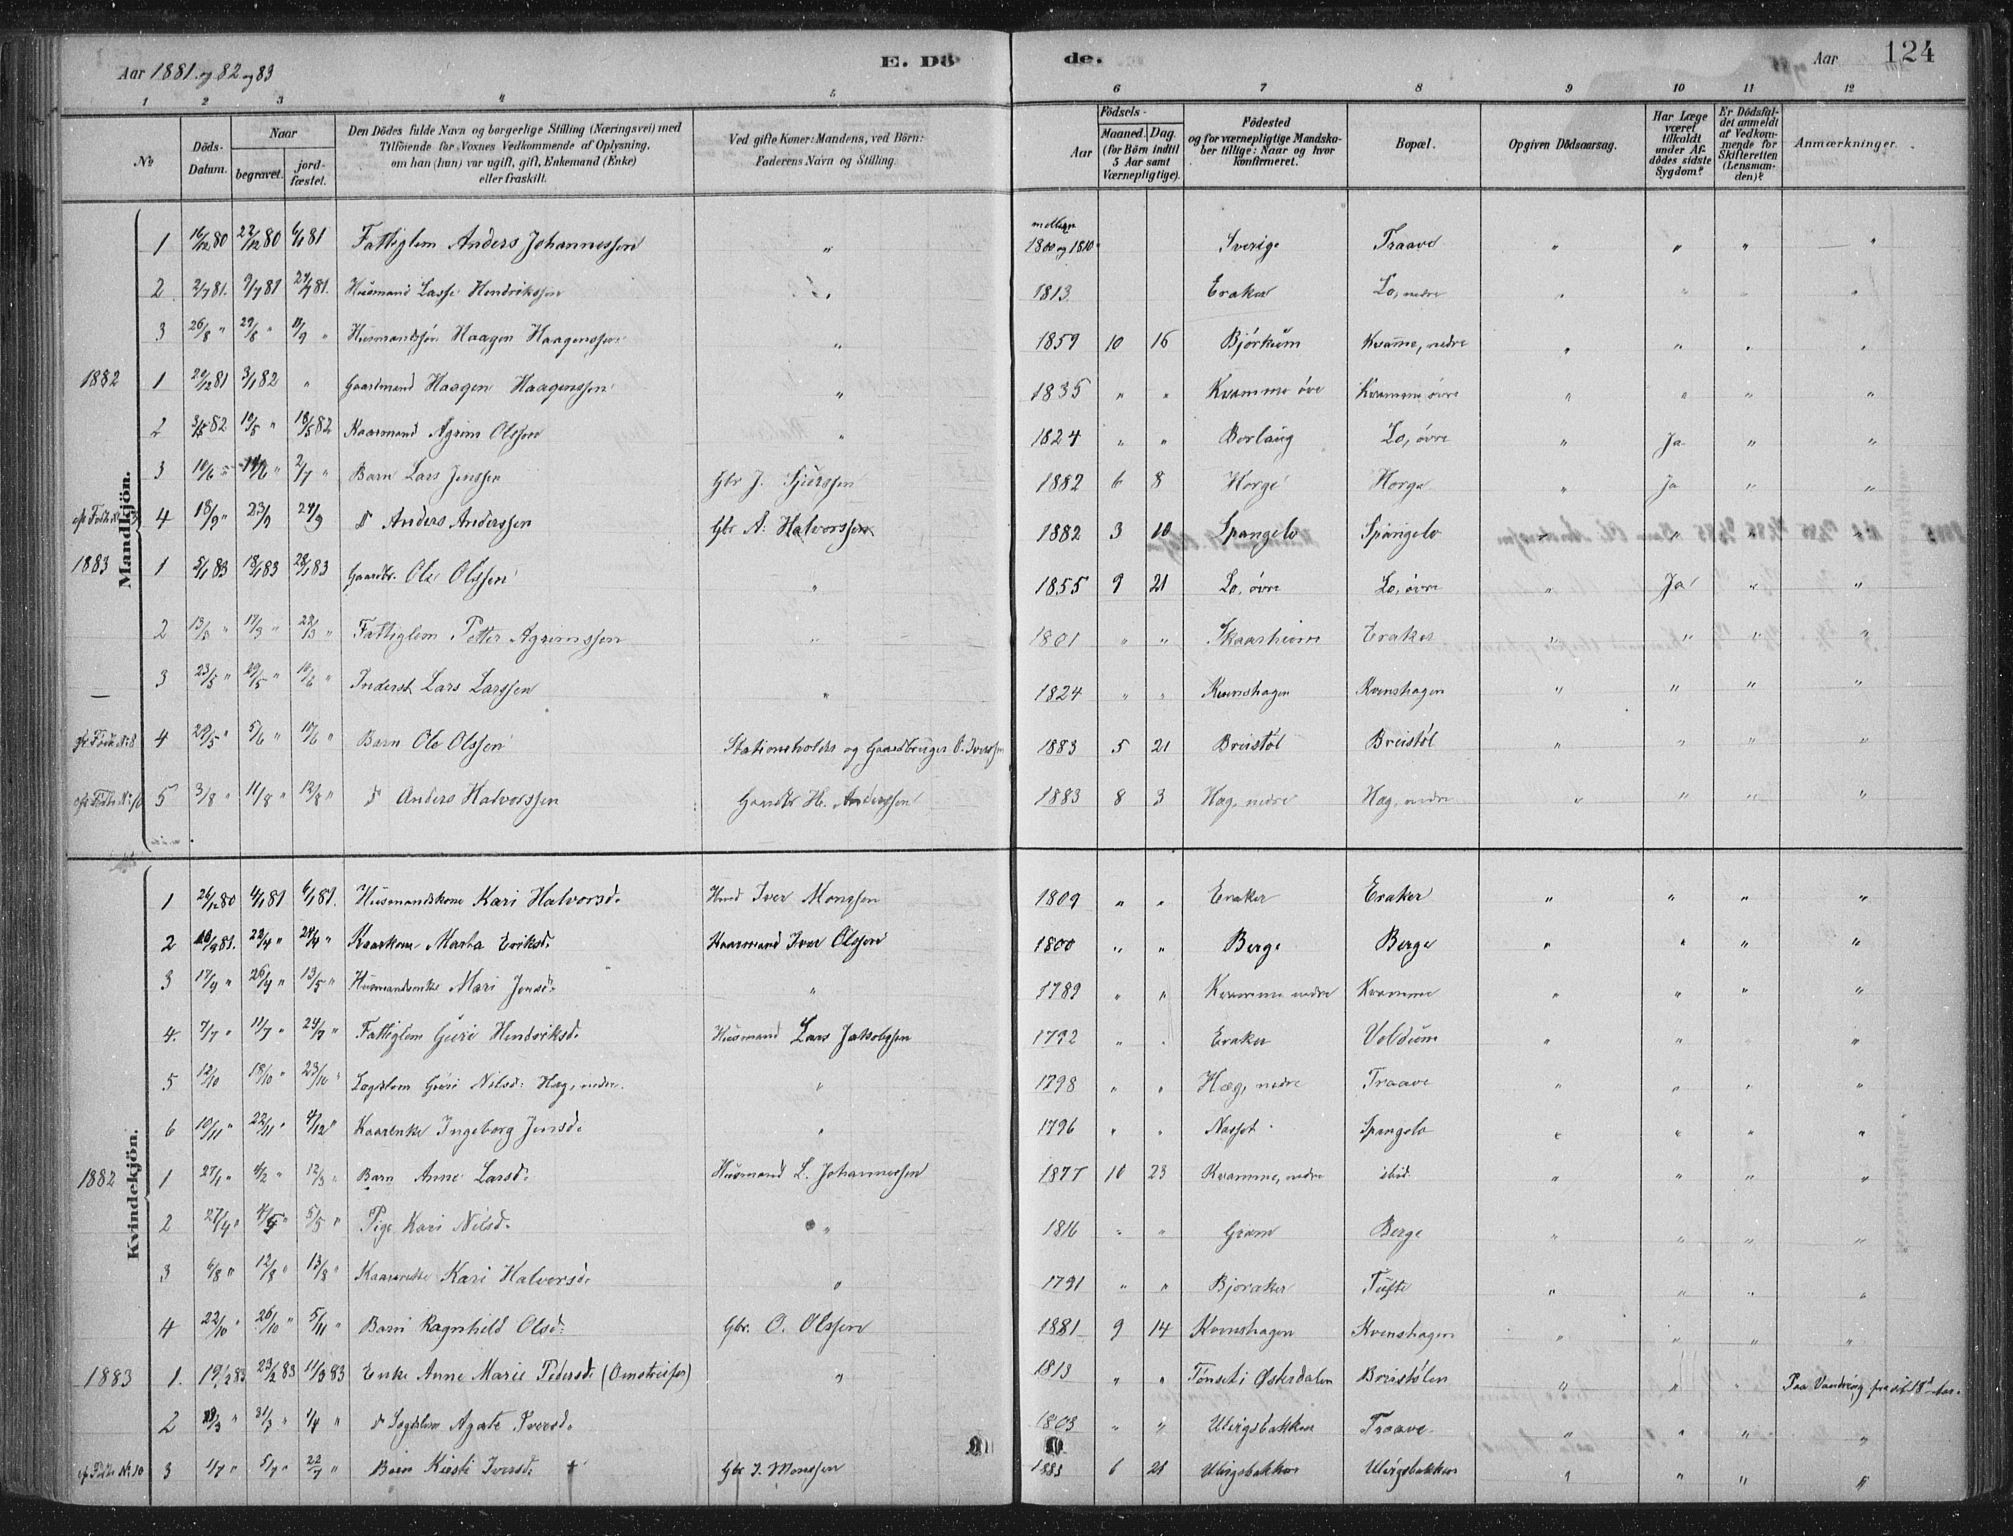 Aar 1881 og 82 og 83 E. Dö de. Aar 124
1 2 3 4 5 6 7 8 9 10 11 12
No Döds-Datum. Naar begravet. jordfæstet. Den Dödes fulde Navn og borgerlige Stilling (Næringsvei) med Tilföiende for Voxnes Vedkommende af Oplysning, om han (hun) var ugift, gift, Enkemand (Enke) eller fraskilt. Ved gifte Koner: Mandens, ved Börn: Faderens Navn og Stilling. Födsels- Aar Maaned. Dag. (for Börn indtil 5 Aar samt Værnepligtige). Födested og for værnepligtige Mandskaber tillige: Naar og hvor konfirmeret. Bopæl. Opgiven Dödsaarsag. Har Læge været tilkaldt under Afdödes sidste Sygdom? Er Dödsfaldet anmeldt af Vedkommende for Skifteretten (Lensmanden)? Anmærkninger.
Mandkjön.
1 16/12 80 22/12 80 6/1 81 Fattiglem Anders Johannessen " mellem 1800 og 1810 Sverige Traave " " " "
2 2/7 81. 9/7 81 24/7 81. Husmand Lasse Hendrikssen " 1813 Eraker Lo, nedre " " " "
3 26/8 " 29/8 " 11/9 " Husmandssøn Haagen Haagenssen " 1859 10 16 Bjørkum Kvamme, nedre " " " "
1882 1 29/12 81 3/1 82 " Gaardmand Haagen Haagenssen " 1835 " " Kvamme øvre Kvamme øvre " " " "
2 3/5 82 10/5 " 13/5 82 Kaarmand Agrim Olssen " 1824 " " Borlaug Lo, øvre " Ja " "
3 10/6 " 2/7 " Barn Lars Jenssen Gbr J. Sjurssen 1882 6 8 Horge Horge " ja " "
4 18/9 " 23/9 24/9 d Anders Anderssen Gbr A. Halvorssen 1882 3 10 Spangelo Spangelo " " " "
1883 1 5/1 83 13/1 83 28/1 83 Gaardbr. Ole Olssen " 1855 9 21 Lo, øvre Lo, øvre " Ja " "
2 13/3 " 17/3 " 28/3 " Fattiglem Petter Agrimssen " 1801 " " Skaarheim Eraker " " " "
3 23/5 " 29/5 " 10/6 " Inderst Lars Larssen " 1824 " " Kvenshagen Kvenshagen " " " "
4 29/5 " 5/6 " 10/6 " Barn Ole Olssen Stationsholder og Gaardbruger O. Iverssen 1883 5 21 Breistøl Breistøl " " " "
5 3/8 " 11/8 " 12/8 " d Anders Halvorssen Gaardbr H. Anderssen 1883 8 3 Hæg, nedre Hæg, nedre " " " "
Kvindekjön.
1 26/12 80 4/1 81 6/1 81. Husmandskone Kari Halvorsd. Hmd Iver Monssen 1809 " " Eraker Eraker " " " "
2 81. 22/4 " 24/4 " Kaarkone Marta Eriksd. Kaarmand Iver Olssen 1800 " " Berge Berge " " " "
3 17/4 " 26/4 " 13/5 " Husmandsenke Mari Jensd. " 1789 " " Kvamme nedre Kvamme " " " "
4. 7/7 " 11/7 " 24/7 " Fattiglem Guri Hendriksd. Husmand Lars Jakobssen 1792 " " Eraker Voldum " " " "
5 12/10 18/10 " 23/10 " Lægdslem Guri Nilsd. Hæg, nedre. " 1798 " " Hæg, nedre Traave " " " "
6 10/11 " 22/11 " 4/12 " Kaarenke Ingeborg Jensd. " 1796 " " Nasset Spangelo " " " "
1882 1 27/1 " 4/2 " 12/3 " Barn Anne Larsd. Husmand L. Johannessen 1877 10 23 Kvamme, nedre ibid. " " " "
2 27/4 " 4/5 " 5/5 " Pige Kari Nilsd. " 1816 " " Grøm Berge " " " "
3 6/8 " 12/8 " 13/8 " Kaarenke Kari Halvorsd. " 1791 " " Bjoraker Tufte " " " "
4 22/10 " 26/10 " 5/11 " Barn Ragnhild Olsd. Gbr. O. Olssen 1881 9 14 Kvenshagen Kvenshagen " " " "
1883 1. 19/2 83 23/2 83 11/3 83 Enke Anne Marie Pedersd. (Omstreifer) " 1813 " " Tønset i Østerdalen Breistølen " " " Paa Vandring fra sit 18d Aar.
2 " 31/3 " 1/4 " d Lægdslem Agate Iversd. " 1803 " " Ulvigsbakken Traave " " " "
3 1/7 " 5/7 " 22/7 " Barn Kirsti Iversd. Gbr I. Monssen 1883 6 21 Ulvigsbakken Ulvigsbakken " " " "